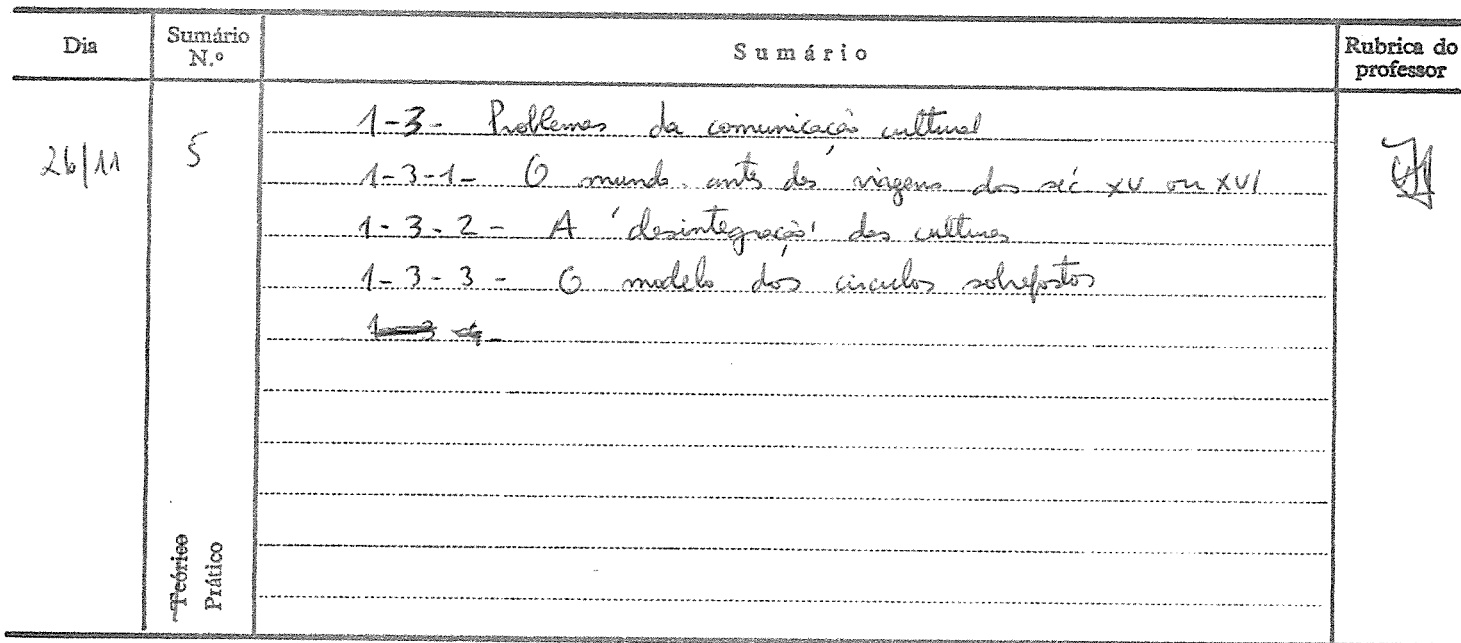 Dia
Sumário N.º
Sumário
Rubrica do professor
26/11
5
1-3- Problemas da comunicação cultural
1-3-1- O mundo antes das viagens dos séc XV ou XVI
1-3-2- A 'desintegração' das culturas
1-3-3- O modelo dos circulos sobrepostos
1-3-4-
Teórico
Prático